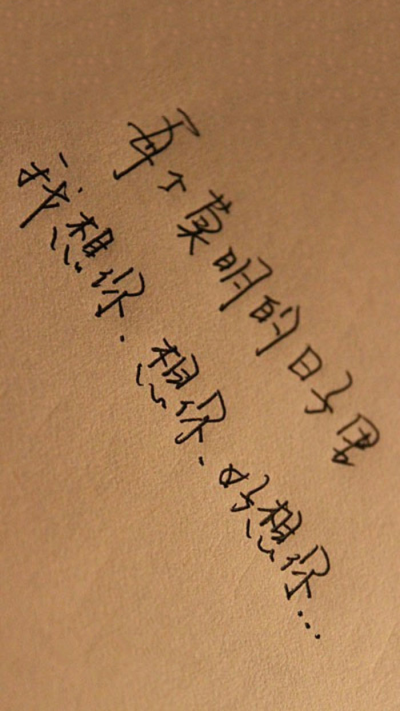 每个莫明的日子里
我想你.想你.好想你...